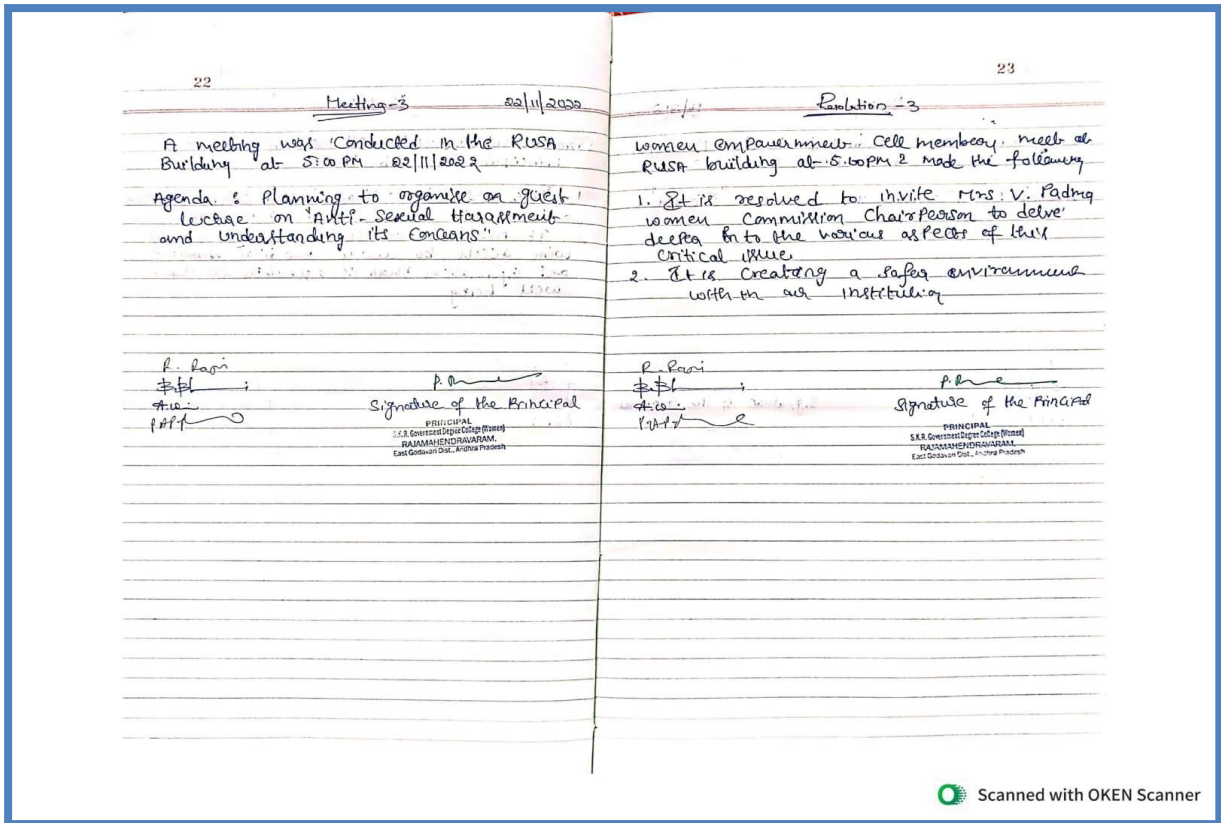 22
Meeting-3 22/11/2022
A meeting was Conducted in the RUSA
Building at 5:00 PM 22/11/2022
Agenda : Planning to organise an guest
lecture on "Anti-Sexual Harassment
and Understanding its Concerns"
R. Rani
Signature of the Principal
PRINCIPAL
S.K.R. Government Degree College (Women)
RAJAMAHENDRAVARAM.
East Godavari Dist., Andhra Pradesh
23
Resolution-3
women empowerment Cell members meet at
RUSA building at 5:00PM & made the following
1. It is resolved to invite Mrs. V. Padma
women Commission ChairPerson to delve
deeper in to the various aspects of this
Critical issue
2. It is Creating a safer environment
with in our institution
R. Rani
Signature of the Principal
PRINCIPAL
S.K.R. Government Degree College (Women)
RAJAMAHENDRAVARAM.
East Godavari Dist., Andhra Pradesh
Scanned with OKEN Scanner